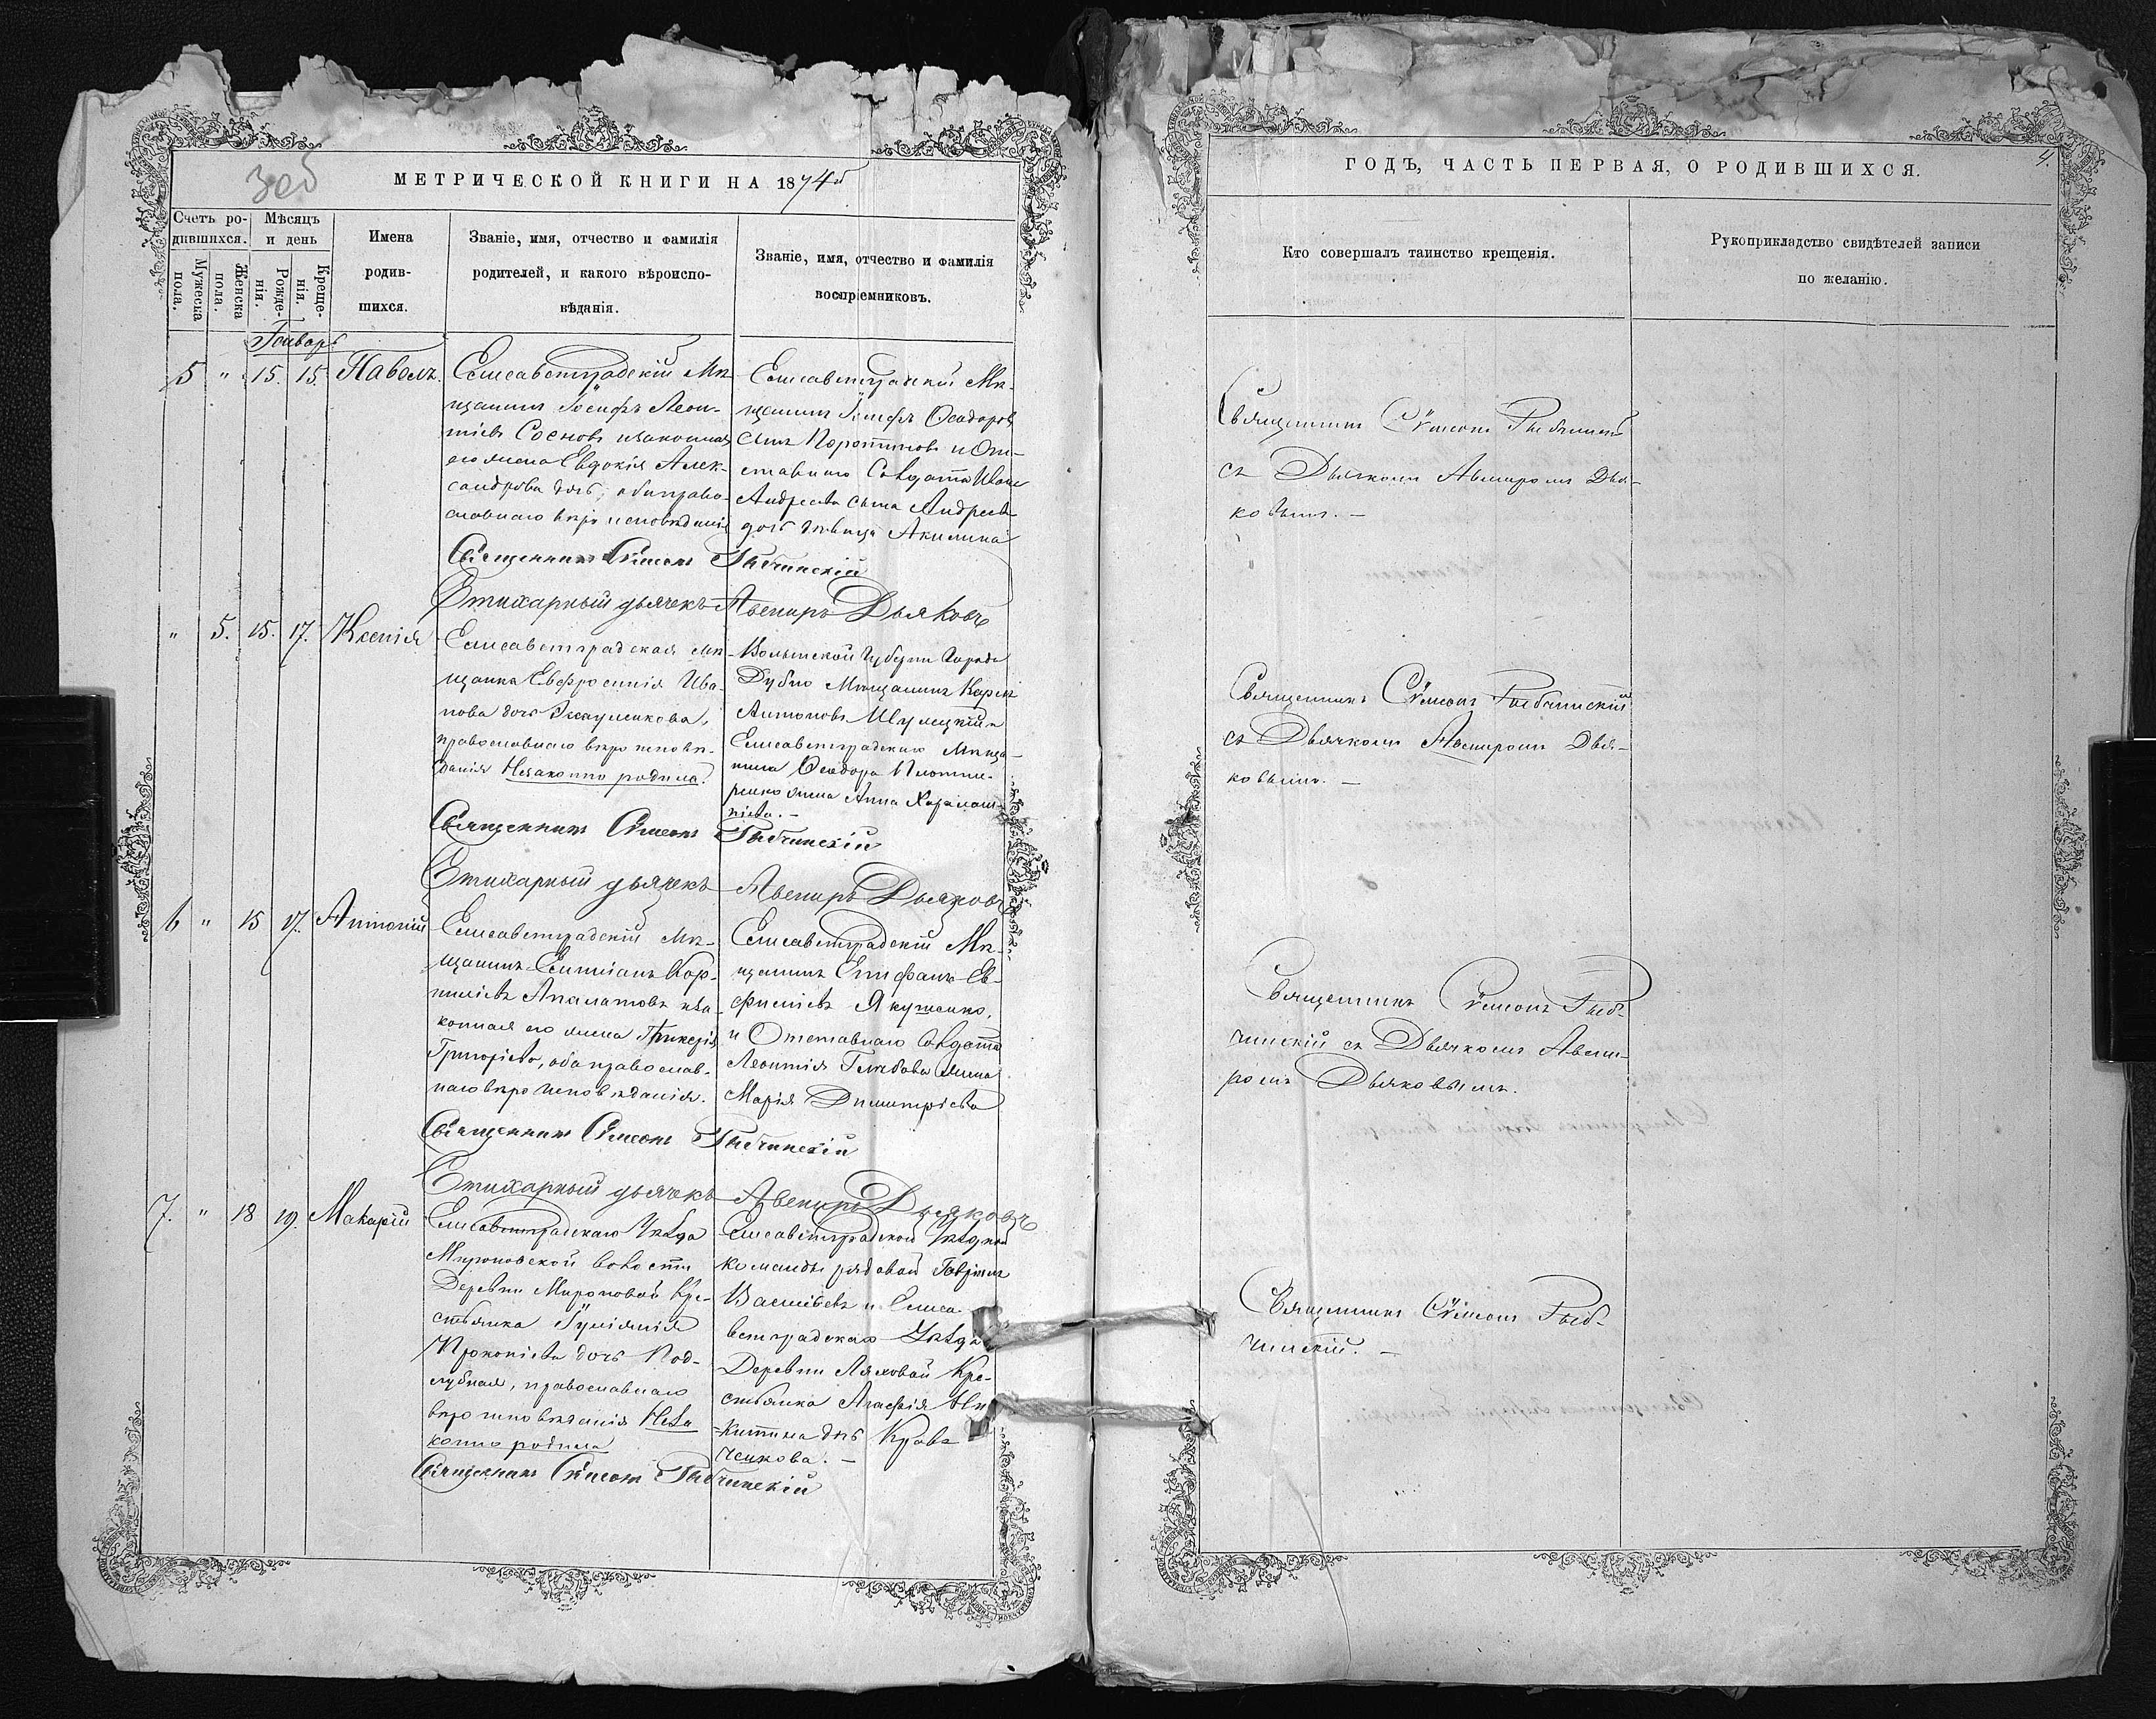 306
МЕТРИЧЕСКОЙ КНИГИ НА 1874й
Счетъ ро-
дившихся.
Мужеска
пола.
Женска
пола.
Мѣсяцъ
и день
Рожде-
нія.
Креще-
нія.
Имена
родив-
шихся.
Званіе, имя, отчество и фамилія
родителей, и какого вѣроиспо-
вѣданія.
Званіе, имя, отчество и фамилія
воспріемниковъ.
Январь
5 " 15. 15. Павелъ.
Елисаветградскій Мѣ-
щанинъ Іосифъ Леон-
тіевъ Сосновъ и законная
его жена Евдокія Алек-
сандрова дочь, оба право-
славнаго вѣроисповѣданія
Елисаветградскій Мѣ-
щанинъ Іосифъ Ѳеодоровъ
сынъ и От-
ставнаго Солдата Ивана
Андреева сына Андреева
дочь дѣвица Акилина
Священникъ Сѵмеонъ Рыбчинскій
Стихарный дьячекъ Авениръ Дьяковъ
" 5. 15. 17. Ксенія
Елисаветградская мѣ-
щанка Евфросинія Ива-
нова дочь
православнаго вѣроисповѣ-
данія Незаконно родила.
Волынской Губерніи Города
Дубно Мѣщанинъ
Антоновъ и
Елисаветградскаго Мѣща-
нина Ѳеодора
жена Анна Харалам-
піева. —
Священникъ Сѵмеонъ Рыбчинскій
Стихарный дьячекъ Авениръ Дьяковъ
6 " 15 17. Антоній
Елисаветградскій Мѣ-
щанинъ Кор-
ниліевъ и за-
конная его жена Гликерія
Григоріева, оба православ-
наго вѣроисповѣданія.
Елисаветградскій Мѣ-
щанинъ Епифанъ Ев-
фиміевъ Якушенко,
и Отставнаго Солдата
Леонтія Глѣбова жена
Марія Димитріева
Священникъ Сѵмеонъ Рыбчинскій
Стихарный дьячекъ Авениръ Дьяковъ
7. " 18 19. Макарій
Елисаветградскаго Уѣзда
Мироновской волости
Деревни Мироновой Кре-
стьянка Іуліанія
Прокопіева дочь Под-
лубная, православнаго
вѣроисповѣданія Неза-
конно родила
Елисаветградской Уѣздной
команды рядовой Гавріилъ
Василіевъ и Елиса-
ветградскаго Уѣзда
Деревни Ляховой Кре-
стьянка Агафія Ни-
китина дочь Крав-
ченкова. —
Священникъ Сѵмеонъ Рыбчинскій
4
ГОДЪ, ЧАСТЬ ПЕРВАЯ, О РОДИВШИХСЯ.
Кто совершалъ таинство крещенія.
Рукоприкладство свидѣтелей записи
по желанію.
Священникъ Сѵмеонъ Рыбчинскій
съ Дьячкомъ Авениромъ Дья-
ковымъ. —
Священникъ Сѵмеонъ Рыбчинскій
съ Дьячкомъ Авениромъ Дья-
ковымъ. —
Священникъ Сѵмеонъ Рыб-
чинскій съ Дьячкомъ Авени-
ромъ Дьяковымъ.
Священникъ Сѵмеонъ Рыб-
чинскій. —